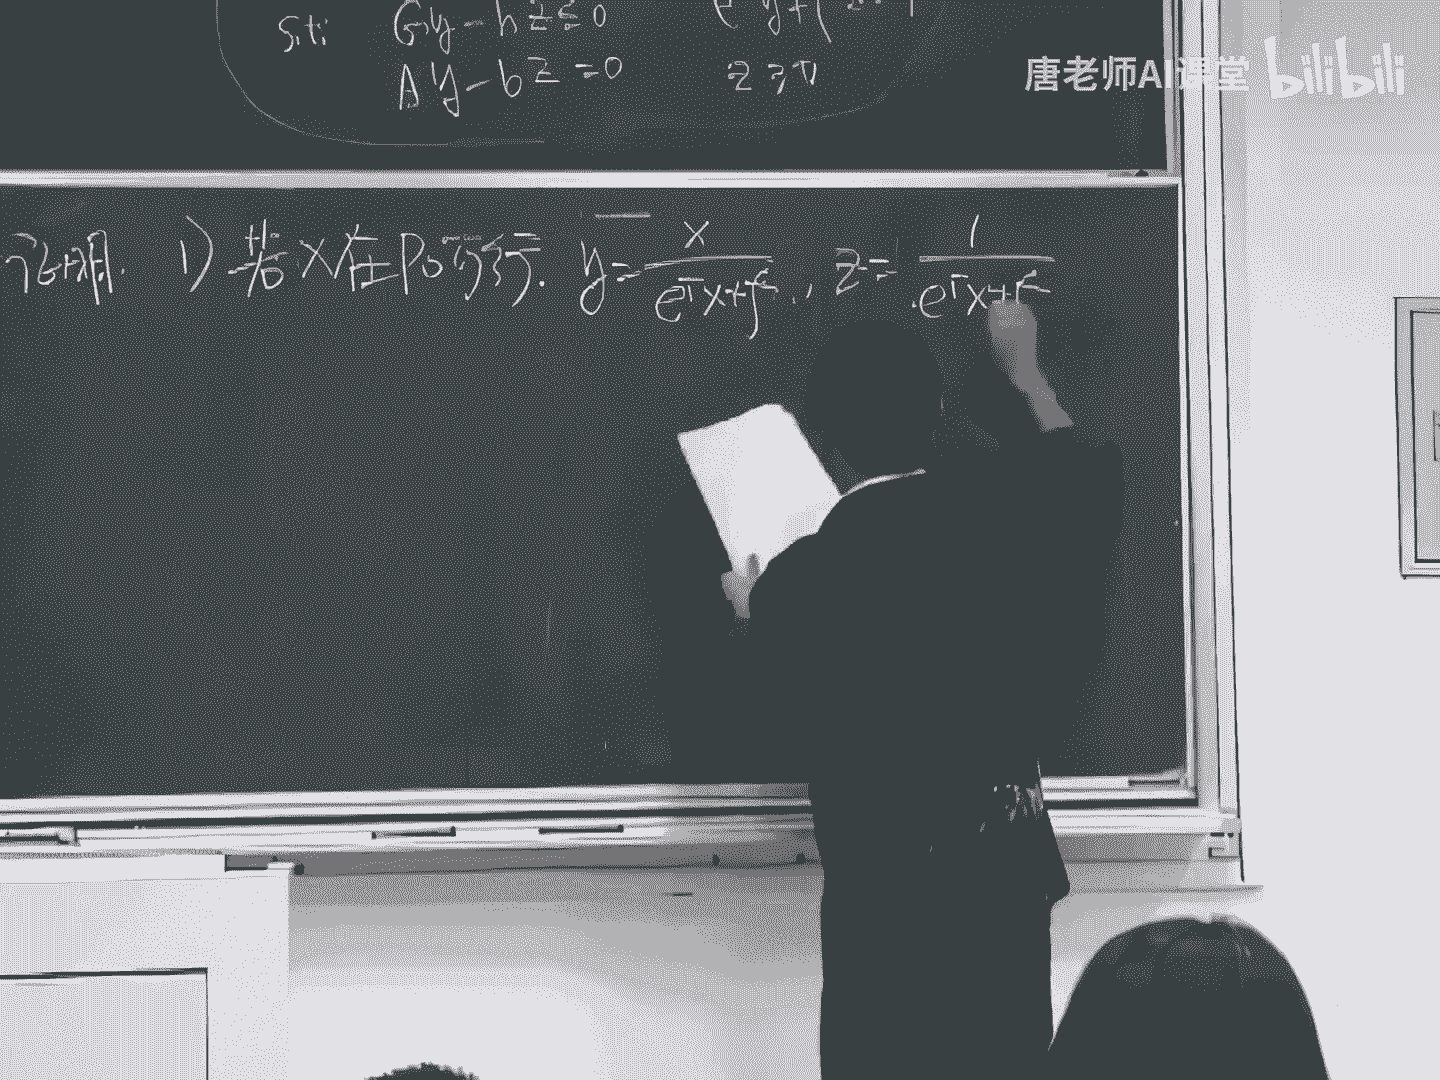 s.t. Gy - hz ≤ 0
Ay - bz = 0 z ≥ 0
唐老师AI课堂 bilibili
证明. 1) 若 x 在 P0 可行. y = x / (eᵀx+f), z = 1 / (eᵀx+f